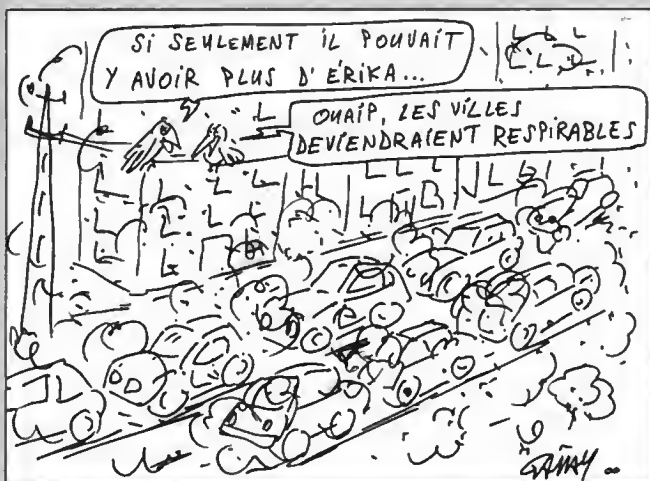 SI SEULEMENT IL POUVAIT
Y AVOIR PLUS D'ÉRIKA...
OUAIP, LES VILLES
DEVIENDRAIENT RESPIRABLES